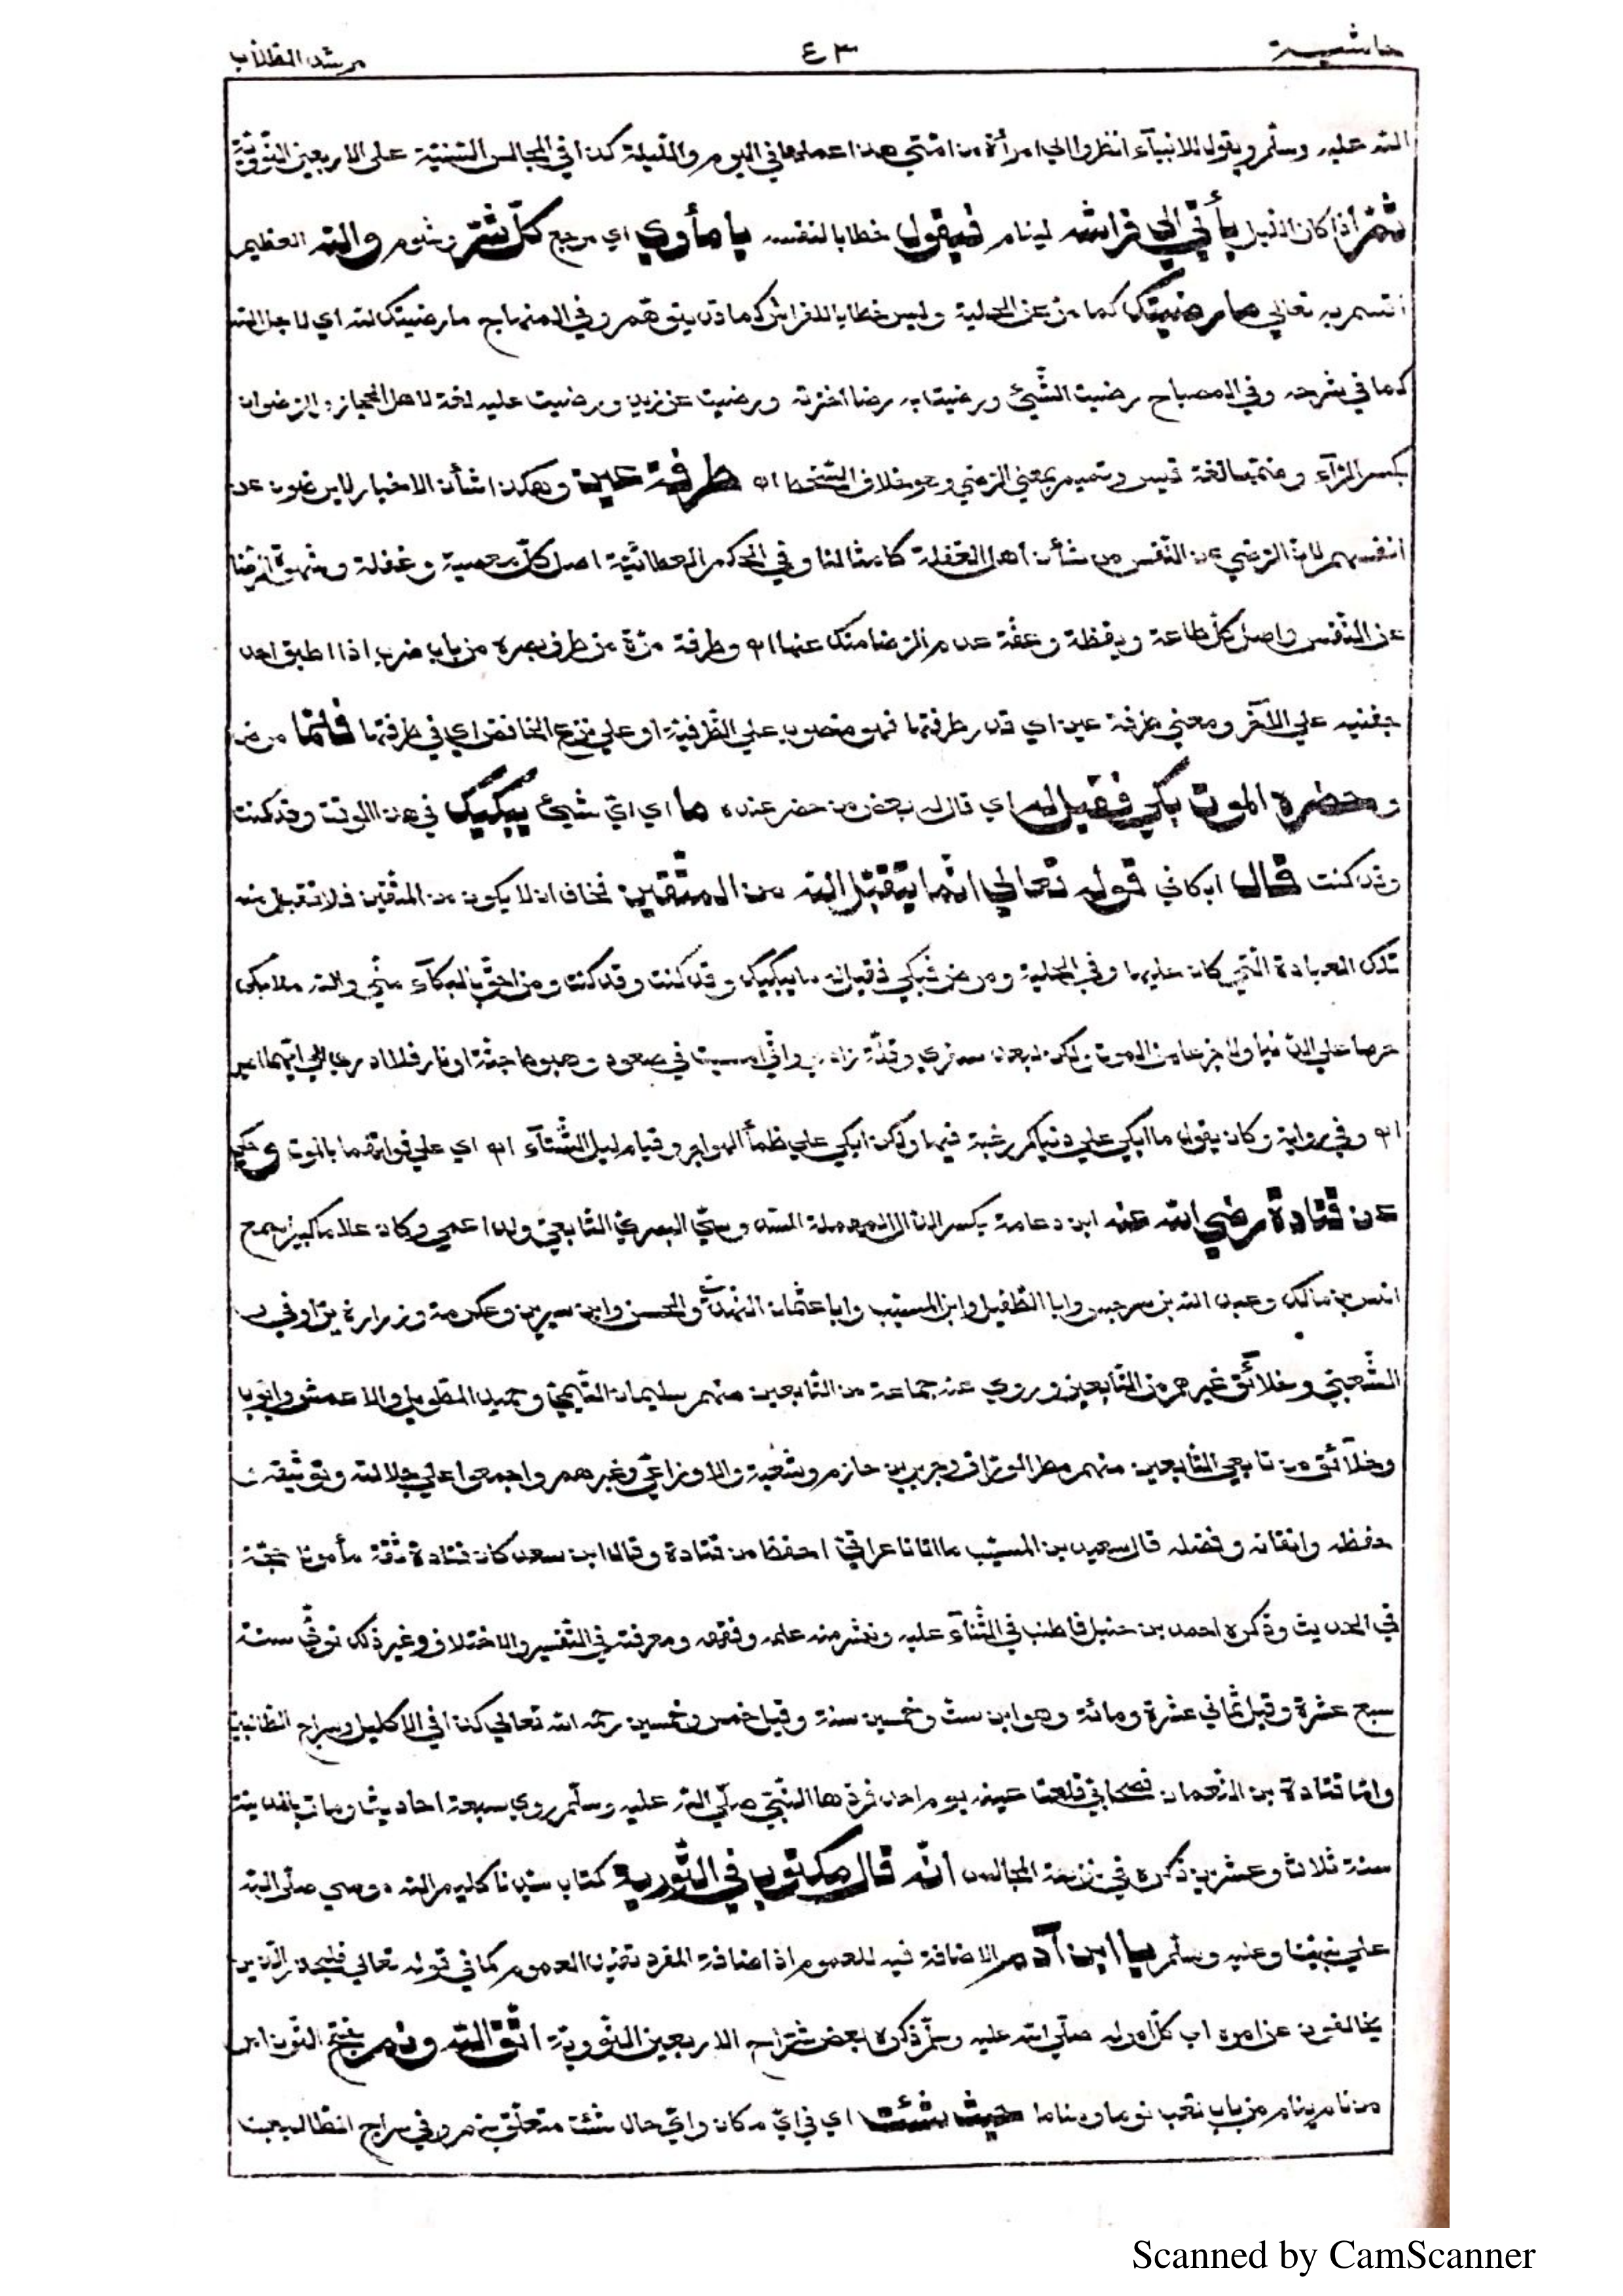 حاشية ٤٣ مرشد الطلاب
الله عليه وسلّم ويقول للانبيآء انظروا الى امرأة من امّتي هذا عملها في اليوم واللّيلة كذا في المجالس السّنيّة على الاربعين النّوويّة
ثمّ اذا كان اللّيل يأتي الى فراشه لينام فيقول خطابا لنفسه يا مأوي اي مرجع كلّ شرّ وشوم والله العظيم
اقسم به تعالى ما رضيتك كما مرّ عن الحلية وليس خطابا للفراش كما قد يتوهّم وفي المنهاج ما رضيتك لله اي لاجل الله
كما في شرحه وفي المصباح رضيت الشّيئ ورضيت به رضا اخترته ورضيت عن زيد ورضيت عليه لغة لاهل الحجاز والرّضوان
بكسر الرّآء وضمّها لغة قيس وتميم بمعنى الرّضي وهو خلاف السّخط اه طرفة عين وهكذا شأن الاخيار لا يرضون عن
انفسهم لانّ الرّضي عن النّفس من شأن اهل الغفلة كامثالنا وفي الحكم العطائيّة اصل كلّ معصية وغفلة وشهوة الرّضا
عن النّفس واصل كلّ طاعة ويقظة وعفّة عدم الرّضا منك عنها اه وطرفة مرّة من طرف بصره من باب ضرب اذا اطبق احد
جفنيه على الآخر ومعنى طرفة عين اي قدر طرفتها فهو منصوب على الظّرفيّة او على نزع الخافض اي في طرفتها فلمّا مرض
وحضره الموت بكى فقيل له اي قال له بعض من حضر عنده ما اي ايّ شيئ يبكيك في هذا الوقت وقد كنت
وقد كنت قال ابكاني قوله تعالى انّما يتقبّل الله من المتّقين فخاف ان لا يكون من المتّقين فلا تقبل منه
تلك العبادة الّتي كان عليها وفي الحلية ومرض فبكى فقيل له ما يبكيك وقد كنت وقد كنت ومن احقّ بالبكآء منّي والله ما ابكى
حرصا على الدّنيا ولا جزعا من الموت ولكن لبعد سفري وقلّة زادي وانّي امسيت في صعود وهبوط جنّة او نار فلا ادري الى ايّهما اصير
اه وفي رواية وكان يقول ما ابكي على دنياكم رغبة فيها ولكن ابكي على ظمأ الهواجر وقيام ليل الشّتآء اه اي على فواتهما بالموت وحكي
عن قتادة رضي الله عنه ابن دعامة بكسر الدّال المهملة السّدوسيّ البصريّ التّابعيّ ولد اعمى وكان علّاما كبيرا سمع
انس بن مالك وعبد الله بن سرجس وابا الطّفيل وابن المسيّب وابا عثمان النّهديّ والحسن وابن سيرين وعكرمة وزرارة بن اوفى و
الشّعبيّ وخلائق غيرهم من التّابعين وروى عنه جماعة من التّابعين منهم سليمان التّيميّ وحميد الطّويل والاعمش وايّوب
وخلآئق من تابعي التّابعين منهم مطر الورّاق وجرير بن حازم وشعبة والاوزاعيّ وغيرهم واجمعوا على جلالته وتوثيقه و
حفظه واتقانه وفضله قال سعيد بن المسيّب ما اتانا عراقيّ احفظ من قتادة وقال ابن سعد كان قتادة ثقة مأمونا حجّة
في الحديث وذكره احمد بن حنبل فاطنب في الثّنآء عليه ونشر منه علمه وفقهه ومعرفته في التّفسير والاختلاف وغير ذلك توفّي سنة
سبع عشرة وقيل ثماني عشرة ومائة وهو ابن ستّ وخمسين سنة وقيل خمس وخمسين رحمه الله تعالى كذا في الاكليل وسراج الطّالبين
وامّا قتادة بن النّعمان فصحابيّ قلعت عينه يوم احد فردّها النّبيّ صلّى الله عليه وسلّم روي سبعة احاديث ومات بالمدينة
سنة ثلاث وعشرين ذكره في نزهة المجالس انّه قال مكتوب في التّورية كتاب سيّدنا كليم الله موسى صلّى الله
على نبيّنا وعليه وسلّم يا ابن آدم الاضافة فيه للعموم اذ اضافة المفرد تفيد العموم كما في قوله تعالى فليحذر الّذين
يخالفون عن امره اي كلّ امر له صلّى الله عليه وسلّم ذكره بعض شرّاح الاربعين النّوويّة اتّق الله ونم بفتح النّون امر
من نام ينام من باب تعب نوما ومناما حيث شئت اي في ايّ مكان وايّ حال شئت متعلّق بنم وفي سراج الطّالبين
Scanned by CamScanner